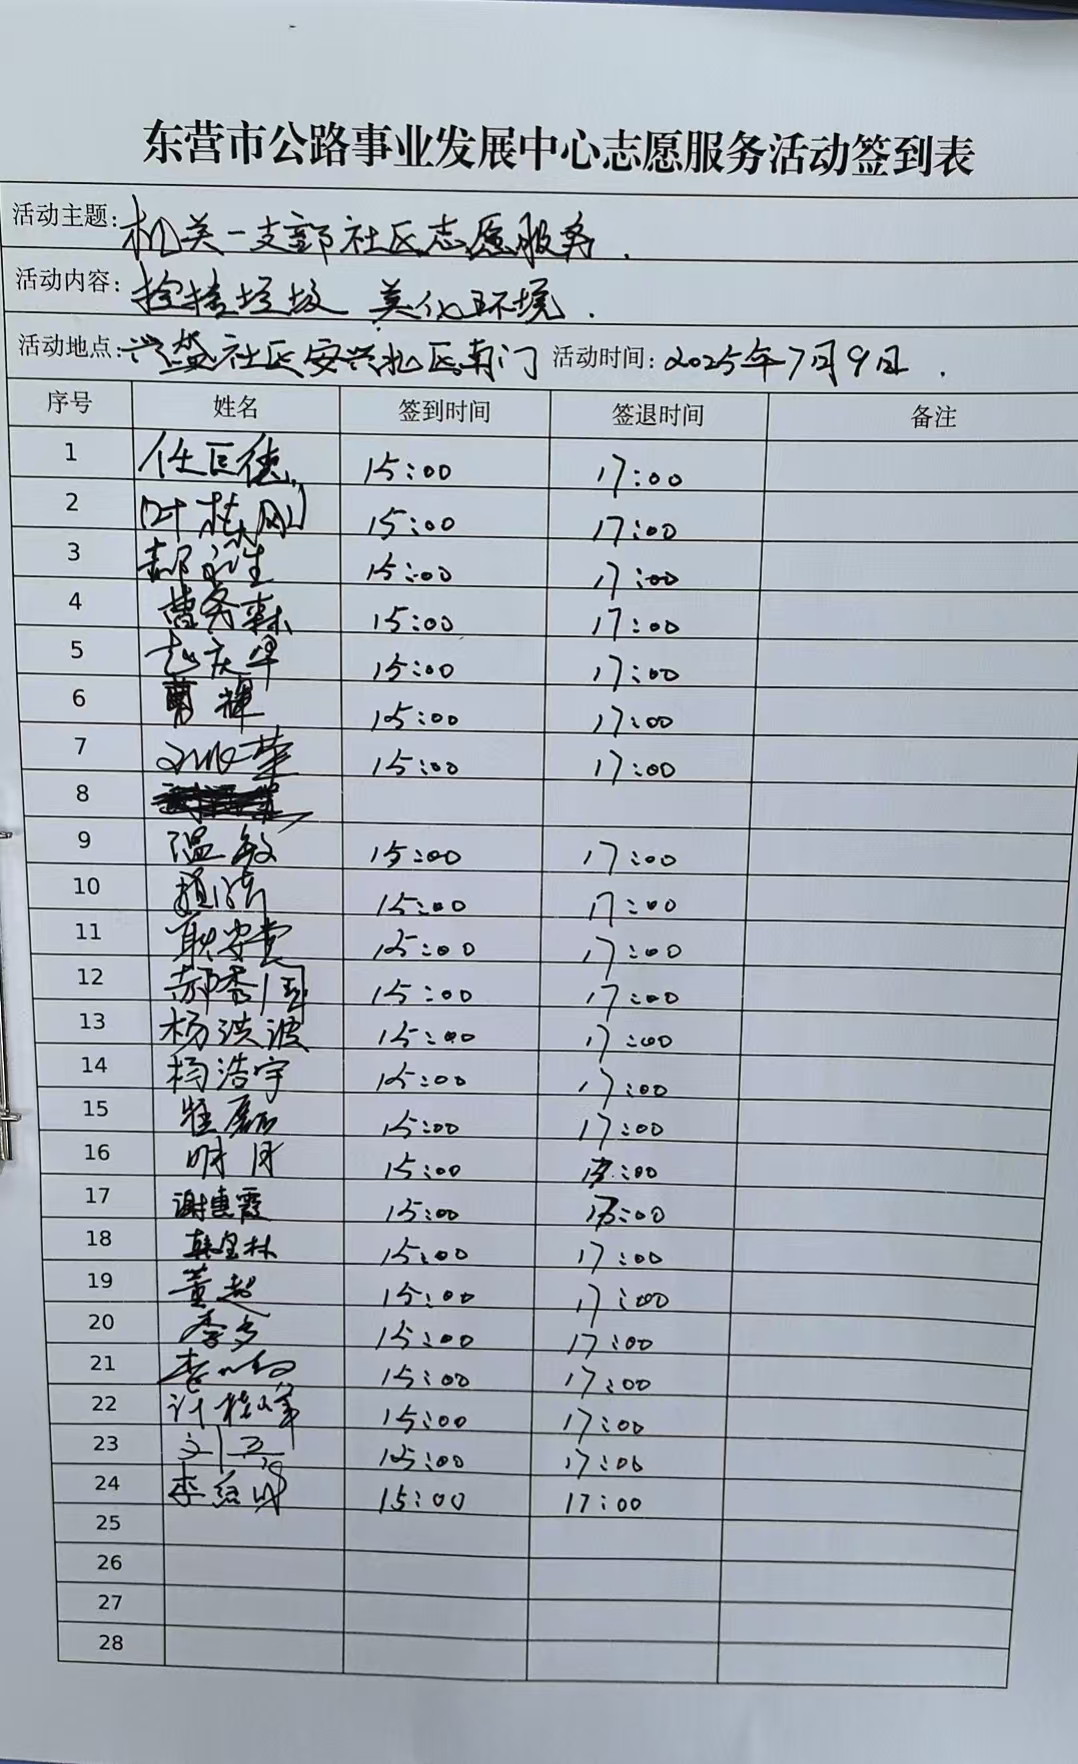 东营市公路事业发展中心志愿服务活动签到表
活动主题: 机关一支部社区志愿服务.
活动内容: 捡拾垃圾 美化环境.
活动地点: 兴盛社区安兴北区南门 活动时间: 2025年7月9日.
序号 姓名 签到时间 签退时间 备注
1 任巨德 15:00 17:00
2 叶树刚 15:00 17:00
3 15:00 17:00
4 曹务森 15:00 17:00
5 赵庆华 15:00 17:00
6 曹辉 15:00 17:00
7 15:00 17:00
8
9 温敏 15:00 17:00
10 15:00 17:00
11 耿安营 15:00 17:00
12 郝秀国 15:00 17:00
13 杨洪波 15:00 17:00
14 杨浩宇 15:00 17:00
15 15:00 17:00
16 明月 15:00 17:00
17 谢惠霞 15:00 17:00
18 韩金林 15:00 17:00
19 董超 15:00 17:00
20 李多 15:00 17:00
21 15:00 17:00
22 15:00 17:00
23 15:00 17:00
24 李绍明 15:00 17:00
25
26
27
28